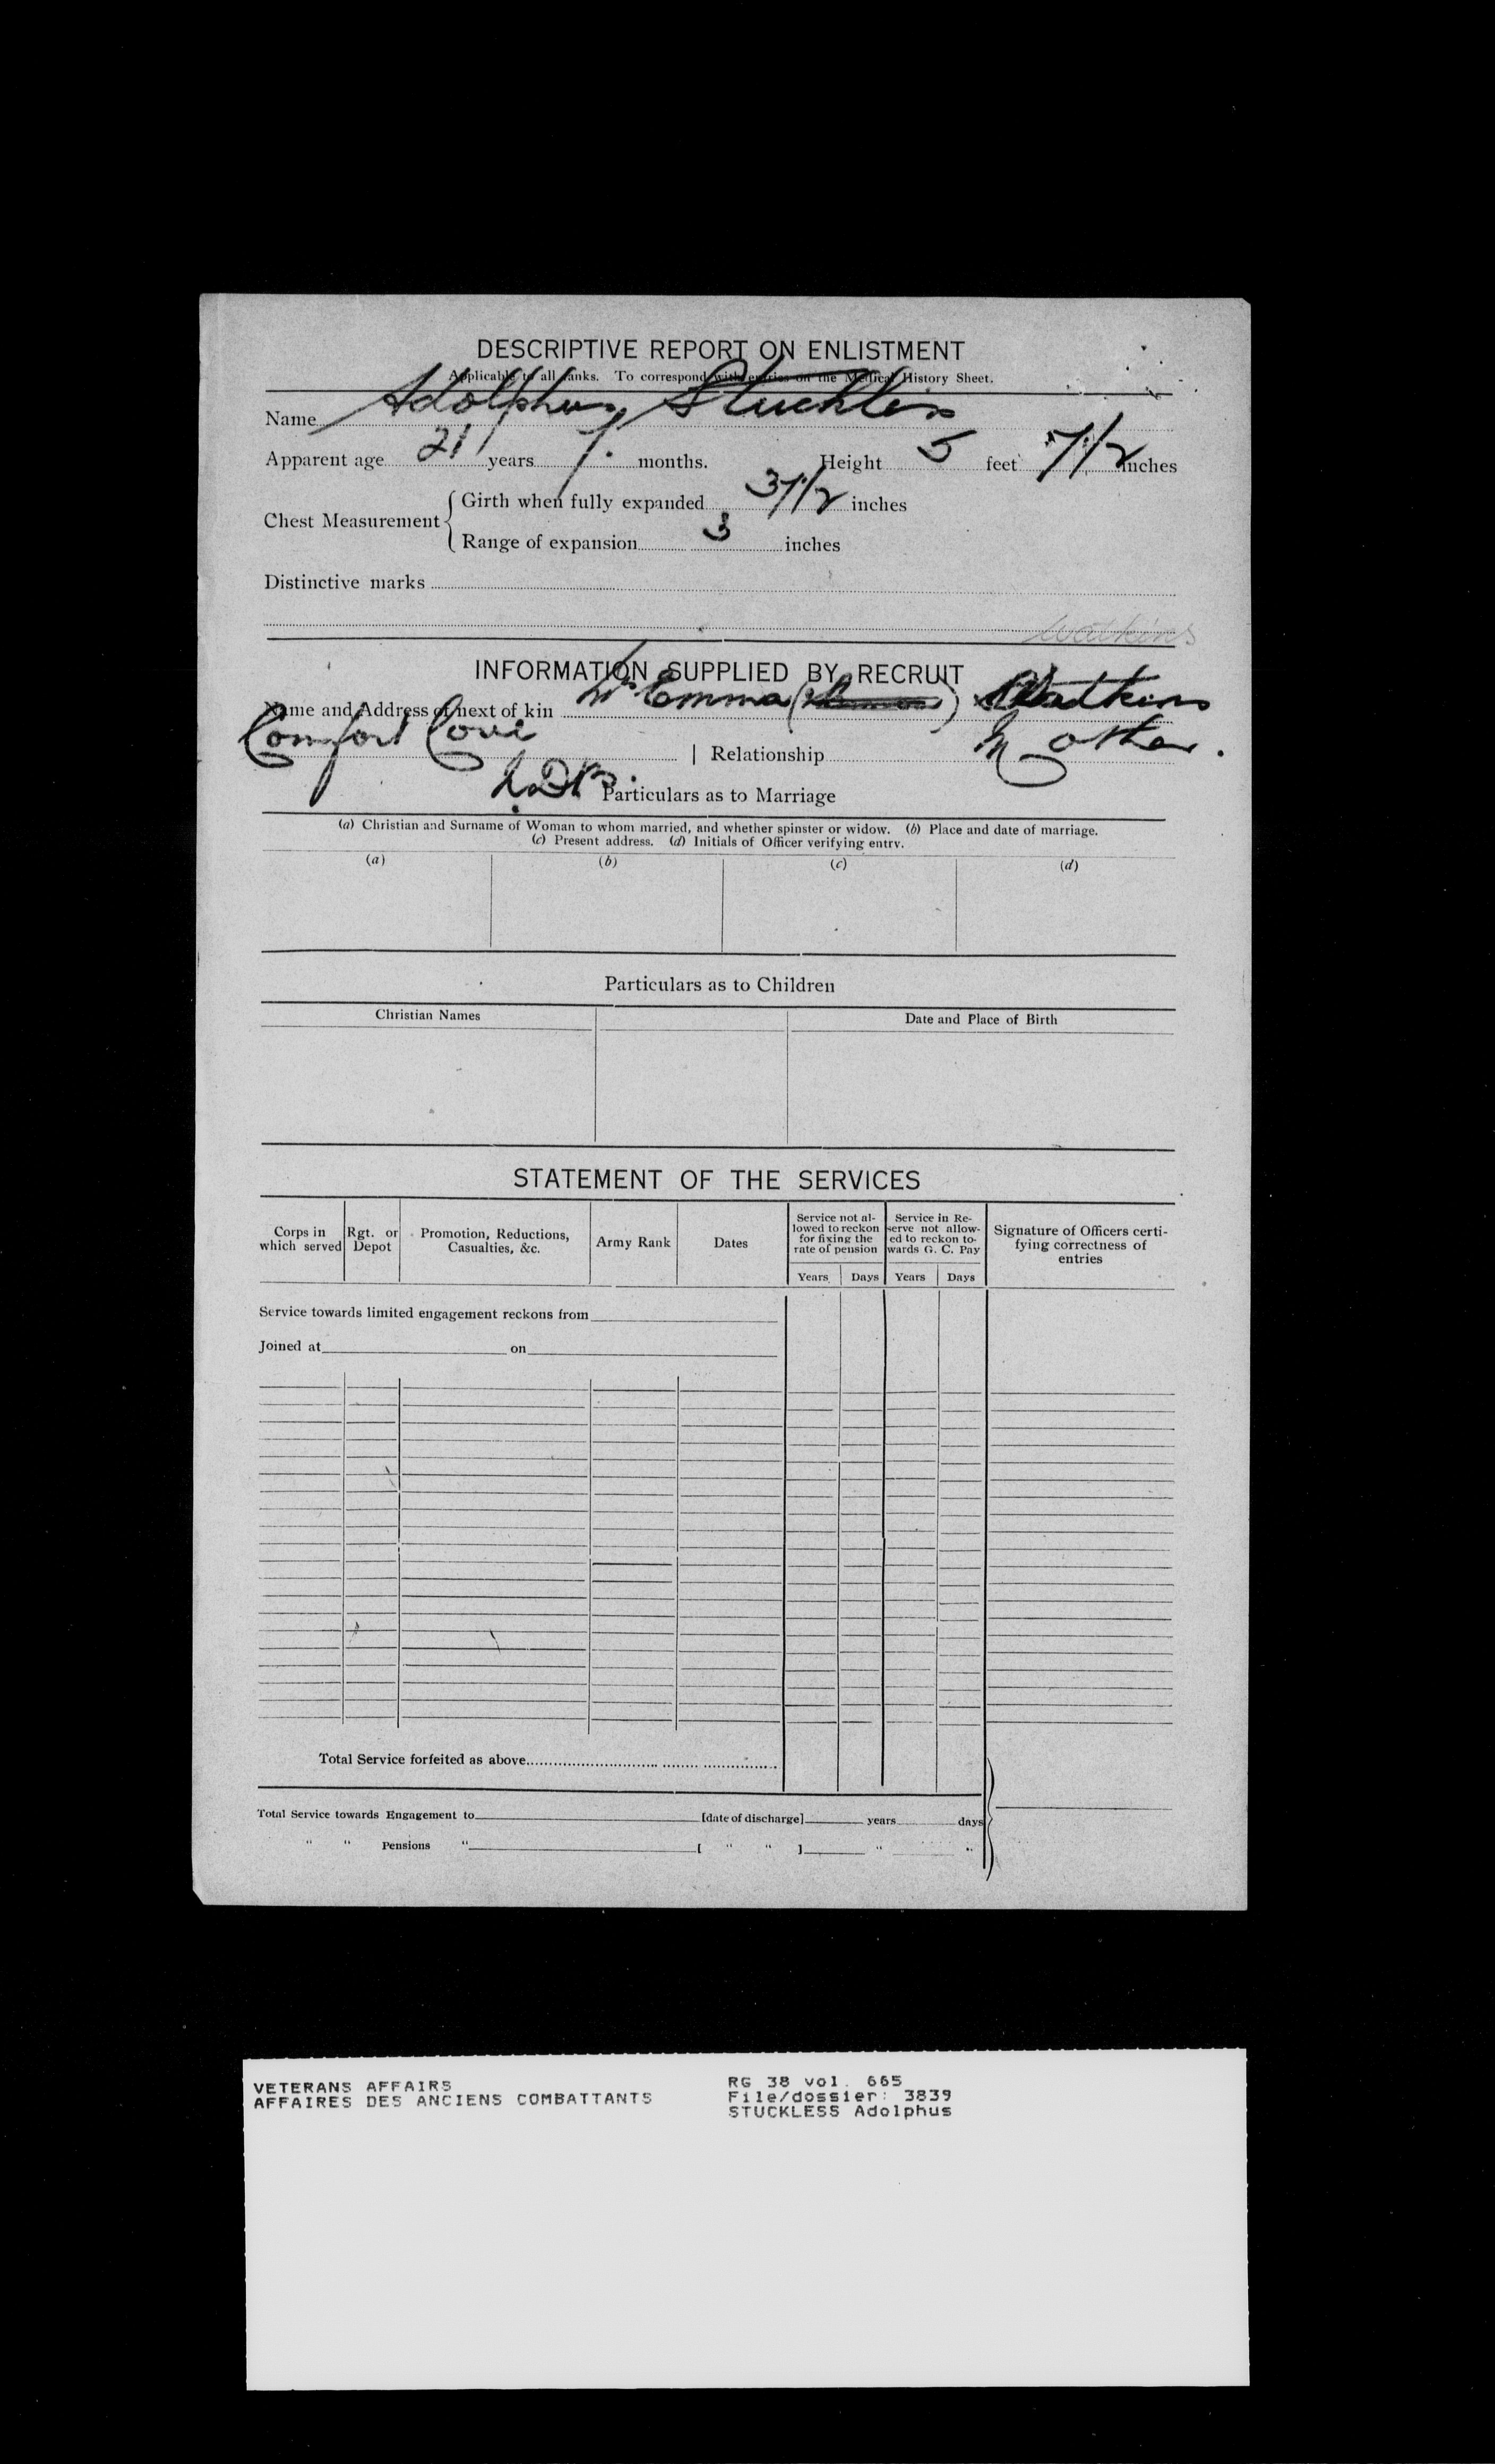 DESCRIPTIVE REPORT ON ENLISTMENT
Applicable to all ranks. To correspond with entries on the Medical History Sheet.
Name Adolphus Stuckless
Apparent age 21 years 7. months. Height 5 feet 7 1/2 inches
Chest Measurement { Girth when fully expanded 37 1/2 inches
Range of expansion 3 inches
Distinctive marks
Watkins
INFORMATION SUPPLIED BY RECRUIT
Name and Address of next of kin Mrs Emma ( ) Watkins
Comfort Cove | Relationship Mother.
N.D.B. Particulars as to Marriage
(a) Christian and Surname of Woman to whom married, and whether spinster or widow. (b) Place and date of marriage.
(c) Present address. (d) Initials of Officer verifying entry.
(a) (b) (c) (d)
Particulars as to Children
Christian Names Date and Place of Birth
STATEMENT OF THE SERVICES
Corps in which served Rgt. or Depot Promotion, Reductions, Casualties, &c. Army Rank Dates Service not allowed to reckon for fixing the rate of pension Service in Reserve not allowed to reckon towards G. C. Pay Signature of Officers certifying correctness of entries
Years Days Years Days
Service towards limited engagement reckons from
Joined at on
Total Service forfeited as above
Total Service towards Engagement to [date of discharge] years days
" " Pensions " [ " " ] " "
VETERANS AFFAIRS RG 38 vol. 665
AFFAIRES DES ANCIENS COMBATTANTS File/dossier: 3839
STUCKLESS Adolphus